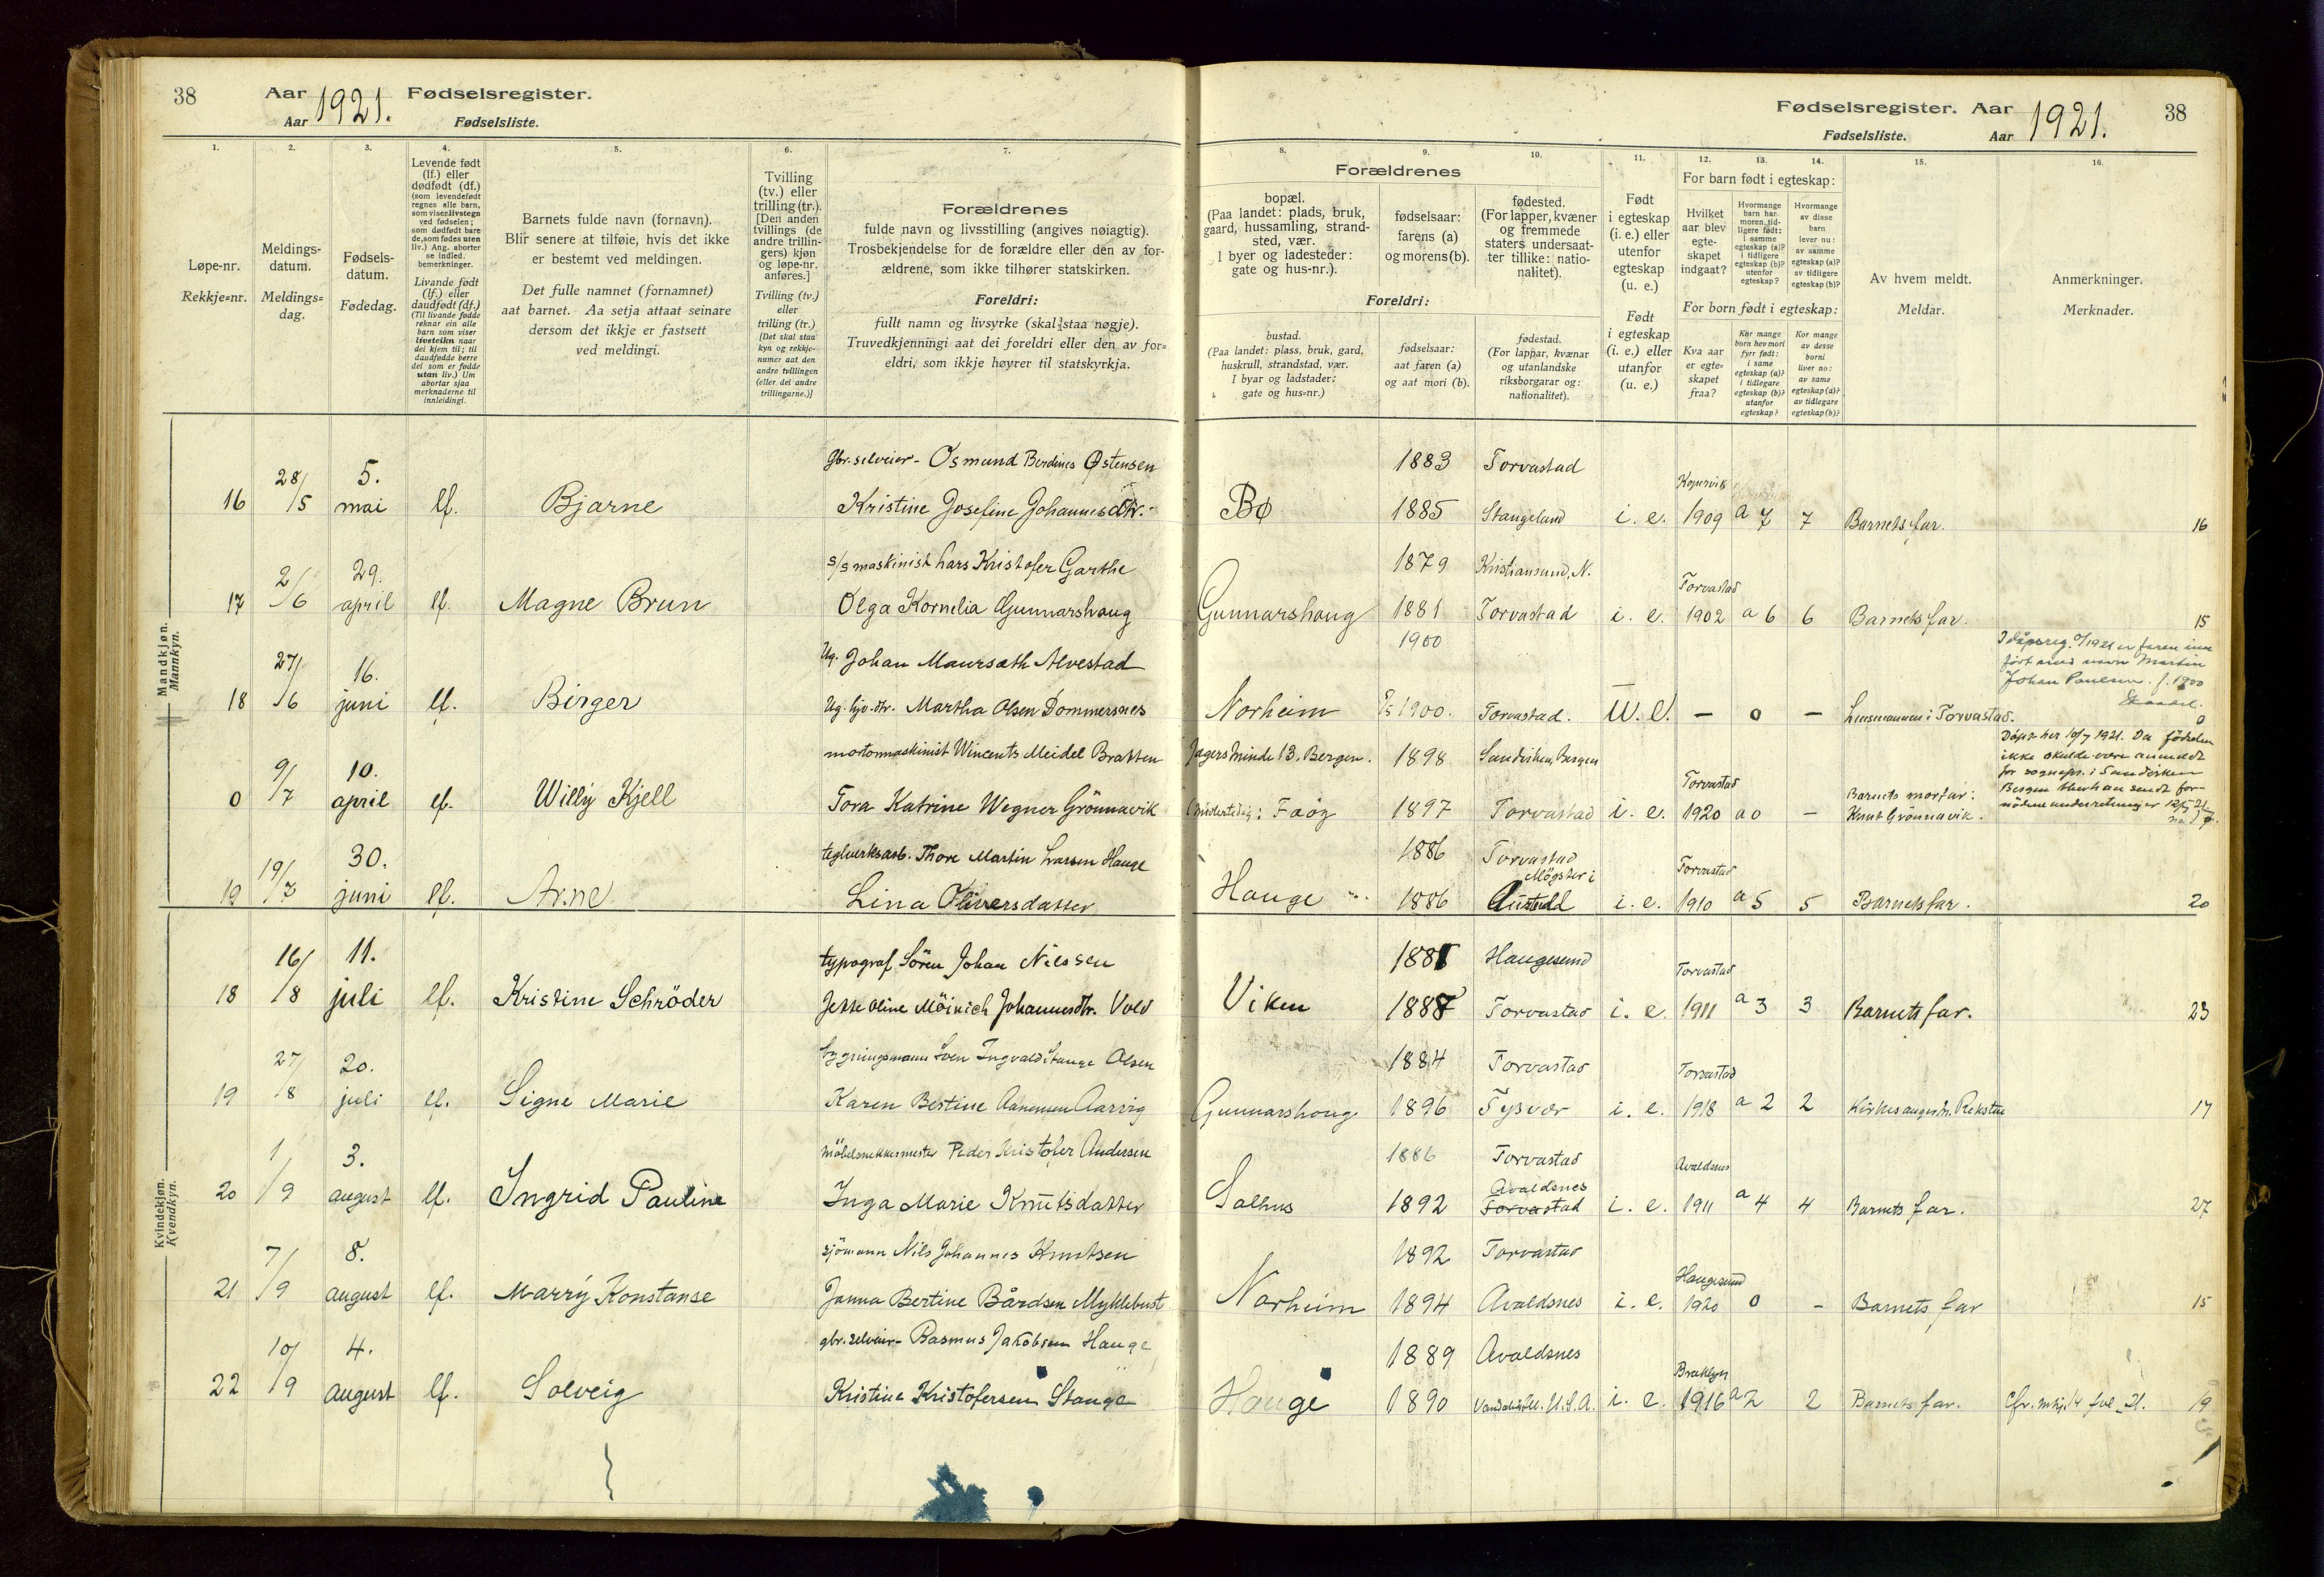 38
Aar 1921. Fødselsregister.
Aar Fødselsliste.
Fødselsregister. Aar 1921. 38
Fødselsliste. Aar
1. 2. 3. 4. 5. 6. 7.
Løpe-nr.
Rekkje=nr.
Meldings-
datum.
Meldings=
dag.
Fødsels-
datum.
Fødedag.
Levende født
(lf.) eller
dødfødt (df.)
(som levendefødt
regnes alle barn,
som viser livstegn
ved fødselen;
som dødfødt bare
de, som fødes uten
liv.) Ang. aborter
se indled.
bemerkninger.
Livande født
(lf.) eller
daudfødt (df.)
(Til livande fødde
reknar ein alle
barn som viser
livsteikn naar
dei kjem til; til
daudfødde berre
dei som er fødde
utan liv.) Um
abortar sjaa
merknaderne til
innleidingi.
Barnets fulde navn (fornavn).
Blir senere at tilføie, hvis det ikke
er bestemt ved meldingen.
Det fulle namnet (fornamnet)
aat barnet. Aa setja attaat seinare
dersom det ikkje er fastsett
ved meldingi.
Tvilling
(tv.) eller
trilling (tr.).
[Den anden
tvillings (de
andre trillin-
gers) kjøn
og løpe-nr.
anføres.]
Tvilling (tv.)
eller
trilling (tr.)
[Det skal staa
kyn og rekkje-
numer aat den
andre tvillingen
(eller dei andre
trillingarne.)]
Forældrenes
fulde navn og livsstilling (angives nøiagtig).
Trosbekjendelse for de forældre eller den av for-
ældrene, som ikke tilhører statskirken.
Foreldri:
fullt namn og livsyrke (skal staa nøgje).
Truvedkjenningi aat dei foreldri eller den av for=
eldri, som ikkje høyrer til statskyrkja.
8. 9. 10. 11. 12. 13. 14. 15. 16.
Forældrenes
bopæl.
(Paa landet: plads, bruk,
gaard, hussamling, strand-
sted, vær.
I byer og ladesteder:
gate og hus-nr.).
fødselsaar:
farens (a)
og morens (b).
fødested.
(For lapper, kvæner
og fremmede
staters undersaat-
ter tillike: natio-
nalitet).
Foreldri:
bustad.
(Paa landet: plass, bruk, gard,
huskrull, strandstad, vær.
I byar og ladstader:
gate og hus=nr.)
fødselsaar:
aat faren (a)
og aat mori (b).
fødestad.
(For lappar, kvænar
og utanlandske
riksborgarar og:
nationalitet).
Født
i egteskap
(i. e.) eller
utenfor
egteskap
(u. e.)
Født
i egteskap
(i. e.) eller
utanfor
(u. e.)
For barn født i egteskap:
Hvilket
aar blev
egte-
skapet
indgaat?
Hvormange
barn har
moren tid-
ligere født:
i samme
egteskap (a)?
i tidligere
egteskap (b)?
utenfor
egteskap?
Hvormange
av disse
barn
lever nu:
av samme
egteskap (a)?
av tidligere
egteskap (b)?
For born født i egteskap:
Kva aar
er egte=
skapet
fraa?
Kor mange
born hev mori
fyrr født:
i same
egteskap (a)?
i tidlegare
egteskap (b)?
utanfor
egteskap?
Kor mange
av desse
borni
liver no:
av same
egteskap (a)?
av tidlegare
egteskap (b)?
Av hvem meldt.
Meldar.
Anmerkninger.
Merknader.
Mandkjøn.
Mannkyn.
gbr. selveier - Osmund Berdines Østensen 1883 Torvastad
16 28/5 5. mai lf. Bjarne Kristine Josefine Johannesdtr. Bø 1885 Stangeland i. e. Kopervik 1909 a 7 7 Barnets far. 16
s/s maskinist Lars Kristofer Garthe 1879 Kristiansund, N.
17 2/6 29. april lf. Magne Brun Olga Kornelia Gunnarshaug Gunnarshaug 1881 Torvastad i. e. Torvastad 1902 a 6 6 Barnets far. 15
Ug. Johan Maursæth Alvestad 1900
I dåpsreg. 1921 er faren inn
ført med navn Martin
Johan Paulsen. f. 1900
18 27/6 16. juni lf. Birger Ug. tjv. dtr. Martha Olsen Dommersnes Norheim 1900. Torvastad. u. e. - 0 - Lensmannen i Torvastad. 0
motormaskinist Wincents Meidel Bratten Jægers Minde 13. Bergen. 1898 Sandviken, Bergen
Døpt her 10/7 1921. Da fødselen
ikke skulde være anmeldt
for sognepr. i Sandviken
Bergen blev han sendt for-
nødne underretninger 12/7-21
0 9/7 10. april lf. Willy Kjell Tora Katrine Wegner Grönnavik (midlertidig: Faöy 1897 Torvastad i. e. Torvastad 1920 a 0 - Barnets morfar: Knut Grönnavik.
teglverksarb. Thore Martin Larsen Hauge 1886 Torvastad
19 19/7 30. juni lf. Arne Lina Oliversdatter Hauge 1886 Mögster i Austevold i. e. Torvastad 1910 a 5 5 Barnets far. 20
Kvindekjøn.
Kvendkyn.
typograf Sören Johan Nilssen 1881 Haugesund
18 16/8 11. juli lf. Kristine Schröder Jette Oline Möinich Johannesdtr. Vold Viken 1887 Torvastad i. e. Torvastad 1911 a 3 3 Barnets far. 23
bygningsmann Sven Ingvald Stange Olsen 1884 Torvastad
19 27/8 20. juli lf. Signe Marie Karen Bertine Aanensen Aarvig Gunnarshaug 1896 Tysvær i. e. Torvastad 1918 a 2 2 Kirkesanger Reksten 17
möbelsnekkermester Peder Kristofer Andersen 1886 Torvastad
20 1/9 3. august lf. Ingrid Pauline Inga Marie Knutsdatter Salhus 1892 Avaldsnes Torvastad i. e. Avaldsnes 1911 a 4 4 Barnets far. 27
sjömann Nils Johannes Knutsen 1892 Torvastad
21 7/9 8. august lf. Marrÿ Konstanse Janna Bertine Bårdsen Myklebust Norheim 1894 Avaldsnes i. e. Haugesund 1920 0 - Barnets far 15
gbr. selveier - Rasmus Jakobsen Hauge 1889 Avaldsnes
22 10/9 4. august lf. Solveig Kristine Kristofersen Stange Hauge 1890 U.S.A. i. e. Brooklyn 1916 a 2 2 Barnets far. Cfr. mkj. 14 fol. 21. 19